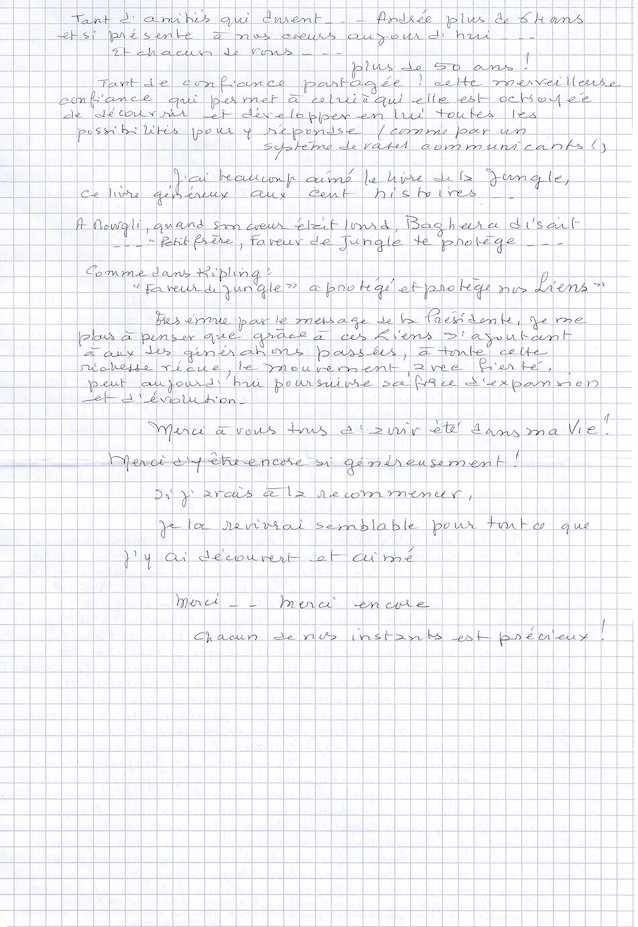 Tant d'amitiés qui durent _ _ _ Andrée plus de 64 ans
et si présente à nos cœurs aujourd'hui _ _ _
Et chacun de vous _ _ _
plus de 50 ans !
Tant de confiance partagée ! cette merveilleuse
confiance qui permet à celui à qui elle est octroyée
de découvrir et développer en lui toutes les
possibilités pour y répondre (comme par un
système de vases communicants !)
J'ai beaucoup aimé le livre de la Jungle,
ce livre généreux aux cent histoires _ _ _
A Mowgli, quand son cœur était lourd, Bagheera disait
_ _ _ "Petit frère, Faveur de Jungle te protège _ _ _
Comme dans Kipling :
"Faveur de Jungle" a protégé et protège nos Liens"
Très émue par le message de la Présidente, je me
plais à penser que grâce à ces Liens s'ajoutant
à aux des générations passées, à toute cette
richesse reçue, le mouvement, avec fierté,
peut aujourd'hui poursuivre sa force d'expansion
et d'évolution.
Merci à vous tous d'avoir été dans ma Vie !
Merci d'y être encore si généreusement !
Si j'avais à la recommencer,
je la revivrai semblable pour tout ce que
j'y ai découvert et aimé
Merci _ _ Merci encore
Chacun de nos instants est précieux !